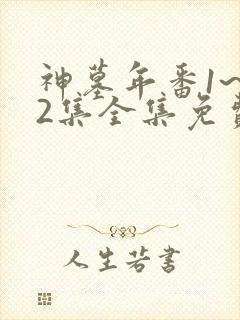 神墓年番1~
2集全集免费
人生若書